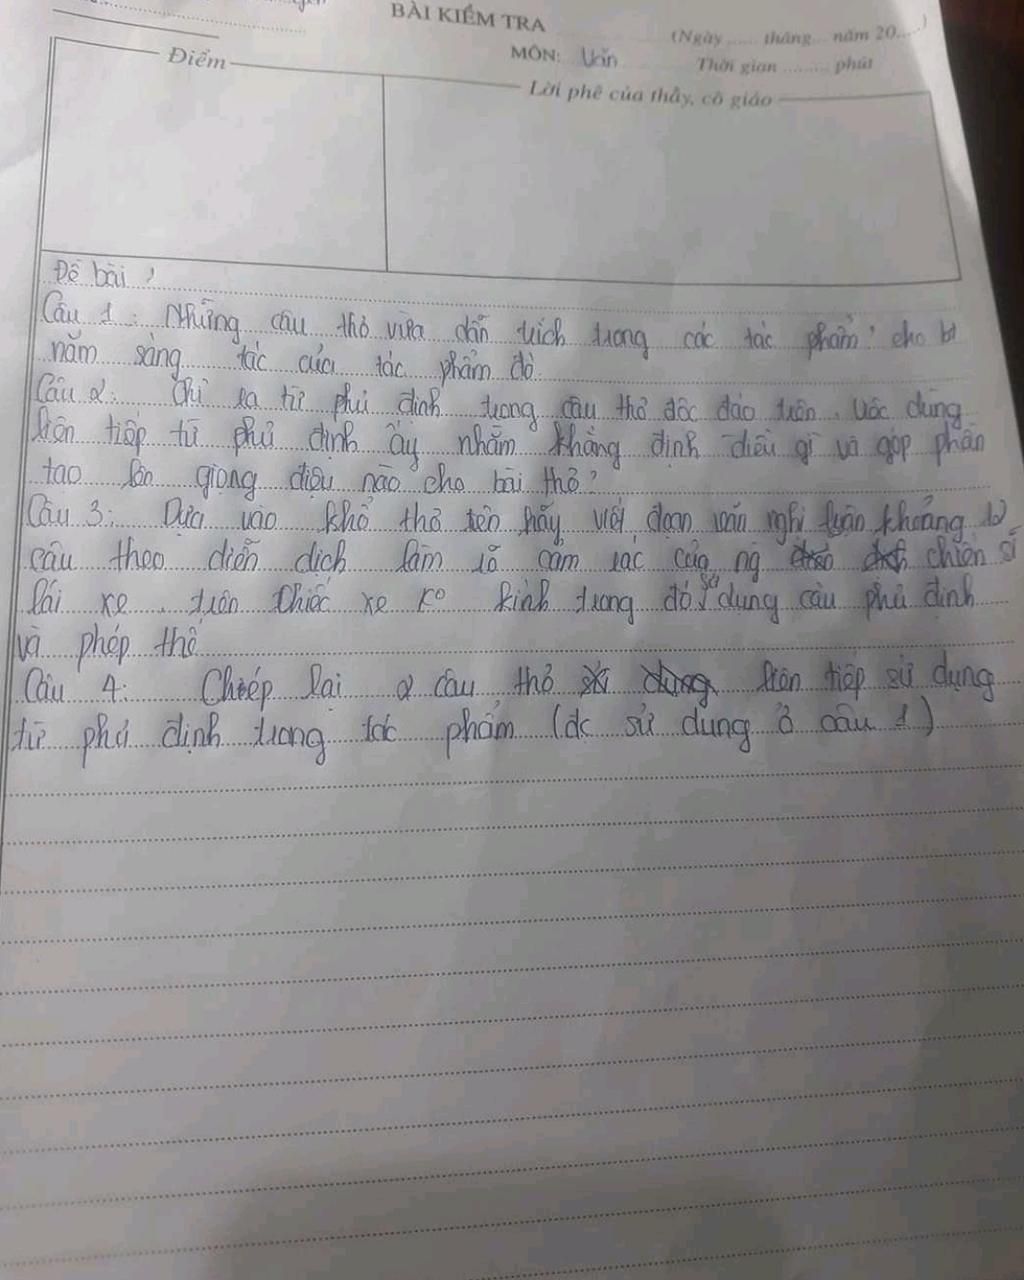 BÀI KIỂM TRA
(Ngày ...... tháng... năm 20.....)
MÔN: Văn
Thời gian ........ phút
Điểm
Lời phê của thầy, cô giáo
Đề bài :
Câu 1 : Những câu thơ vừa dẫn trích trong các tác phẩm? cho bt
năm sáng tác của tác phẩm đó.
Câu 2: Chỉ ra từ phủ định trong câu thơ độc đáo trên. Vốc dùng
liên tiếp từ phủ định ấy nhằm khẳng định điều gì và góp phần
tạo lên giọng điệu nào cho bài thơ?
Câu 3: Dựa vào khổ thơ tên hãy viết đoạn văn nghị luận khoảng 12
câu theo diễn dịch làm rõ cảm xác của ng chiến sĩ
lái xe. trên chiếc xe ko kính trong đó sử dụng câu phủ định
và phép thế
Câu 4: Chép lại 2 câu thơ liên tiếp sử dụng
từ phủ định trong tác phẩm (đc sử dụng ở câu 1)